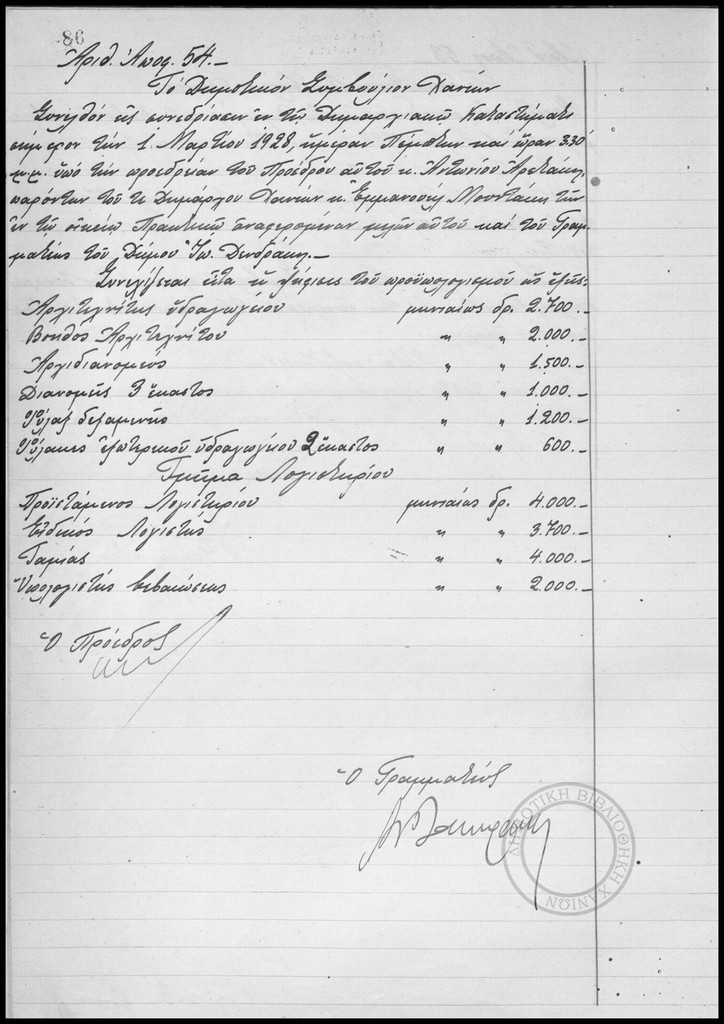 86
Ἀριθ. Ἀποφ. 54.—
Τὸ Δημοτικὸν Συμβούλιον Χανίων
Συνελθὸν εἰς συνεδρίασιν ἐν τῷ Δημαρχιακῷ Καταστήματι
σήμερον τὴν 1 Μαρτίου 1928, ἡμέραν Πέμπτην καὶ ὥραν 3.30'
μ.μ. ὑπὸ τὴν προεδρείαν τοῦ Προέδρου αὐτοῦ κ. Ἀντωνίου
παρόντων τοῦ τε Δημάρχου Χανίων κ. Ἐμμανουὴλ Μουντάκη τῶν
ἐν τῷ οἰκείῳ Πρακτικῷ ἀναφερομένων μελῶν αὐτοῦ καὶ τοῦ Γραμ-
ματέως τοῦ Δήμου Ἰω. Δενδράκη.—
Συνεχίζεται εἶτα ἡ ψήφισις τοῦ προϋπολογισμοῦ ὡς ἑξῆς:
Ἀρχιτεχνίτης ὑδραγωγείου μηνιαίως δρ. 2.700.—
Βοηθὸς Ἀρχιτεχνίτου " " 2.000.—
Ἀρχιδιανομεὺς " " 1.500.—
Διανομεῖς 3 ἕκαστος " " 1.000.—
Φύλαξ δεξαμενῆς " " 1.200.—
Φύλακες ἐξωτερικοῦ ὑδραγωγείου 2 ἕκαστος " " 600.—
Τμῆμα Λογιστηρίου
Προϊστάμενος Λογιστηρίου μηνιαίως δρ. 4.000.—
Εἰδικὸς Λογιστὴς " " 3.700.—
Ταμίας " " 4.000.—
Ὑπολογιστὴς βεβαιώσεως " " 2.000.—
Ὁ Πρόεδρος
Ὁ Γραμματεὺς
ΔΗΜΟΤΙΚΗ ΒΙΒΛΙΟΘΗΚΗ ΧΑΝΙΩΝ